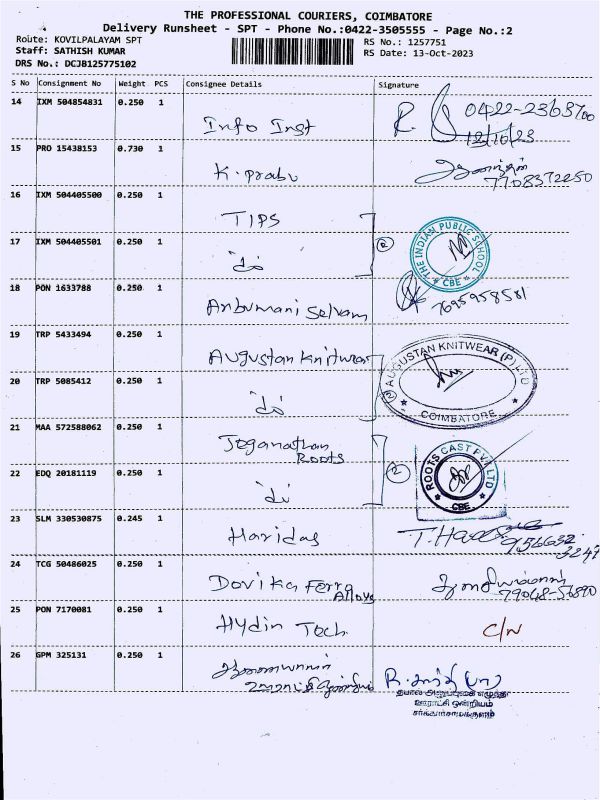 THE PROFESSIONAL COURIERS, COIMBATORE
Delivery Runsheet - SPT - Phone No.:0422-3505555 - Page No.:2
Route: KOVILPALAYAM SPT
Staff: SATHISH KUMAR
DRS No.: DCJB125775102
RS No.: 1257751
RS Date: 13-Oct-2023
S No Consignment No Weight PCS Consignee Details Signature
14 IXM 504854831 0.250 1 Info Inst R. 0422-2363700
12/10/23
15 PRO 15438153 0.730 1 K. prabu 7708372250
16 IXM 504405500 0.250 1 TIPS
17 IXM 504405501 0.250 1 do (2) THE INDIAN PUBLIC SCHOOL CBE
18 PON 1633788 0.250 1 Anbumani Selvam 7695958581
19 TRP 5433494 0.250 1 Augustan Knitwear
20 TRP 5085412 0.250 1 do (2) AUGUSTAN KNITWEAR (P) LTD COIMBATORE
21 MAA 572588062 0.250 1 Joganathan
Roots
22 EDQ 20181119 0.250 1 do (2) ROOTS CAST PVT LTD CBE
23 SLM 330530875 0.245 1 Haridas T. 956632
3247
24 TCG 50486025 0.250 1 Dovika Ferro
Alloys 79048-56890
25 PON 7170081 0.250 1 Hydin Tech C/N
26 GPM 325131 0.250 1
தபால் அனுப்புகை எழுத்தர்
ஊராட்சி ஒன்றியம்
சர்க்கார்சாமக்குளம்